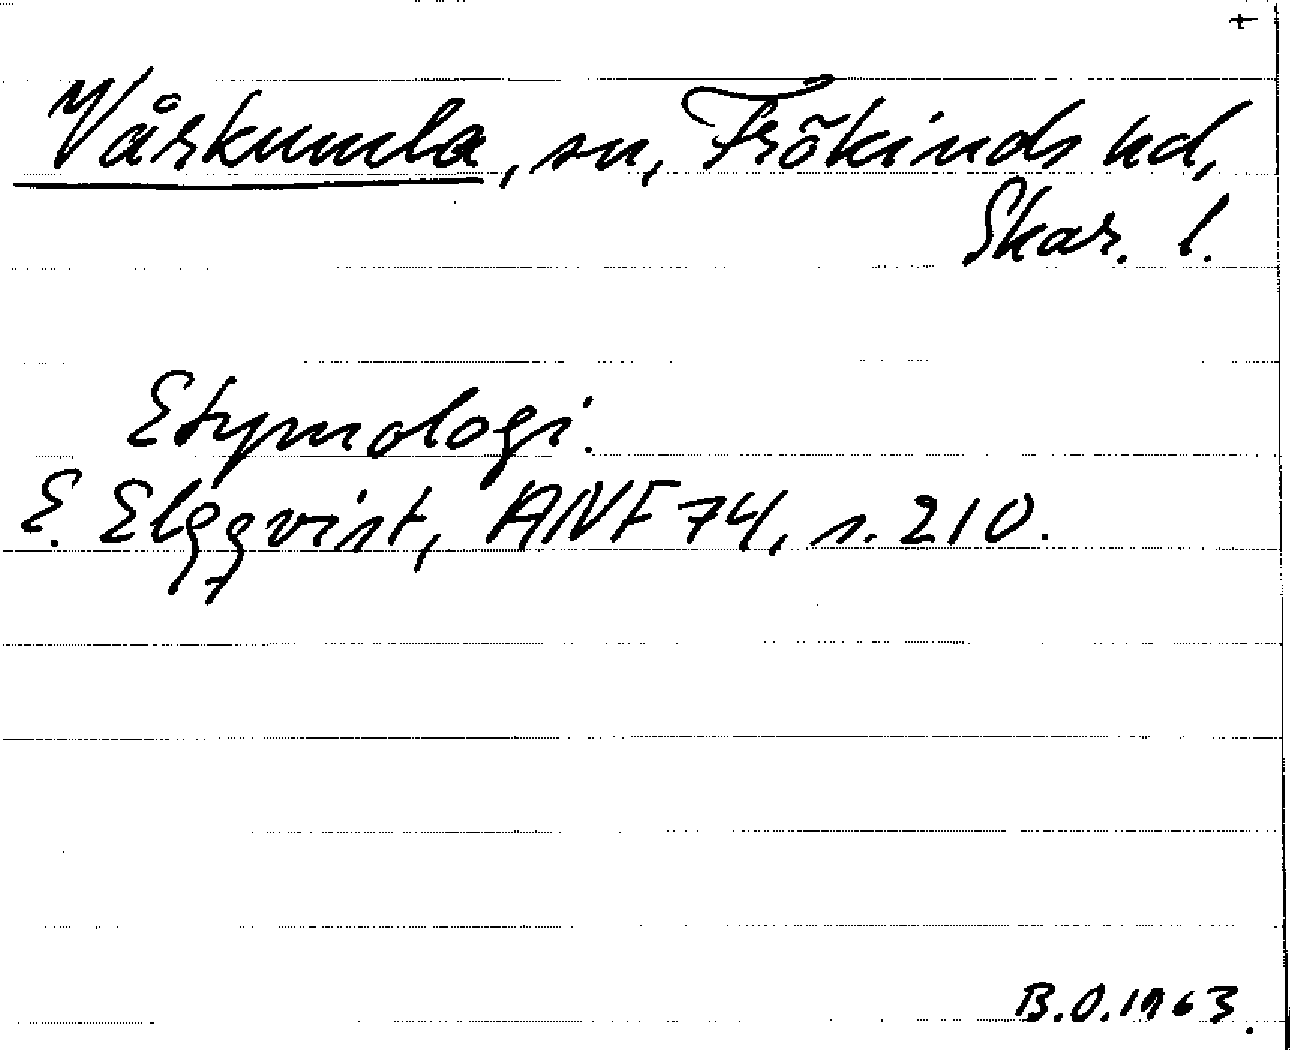 +
Vårkumla, sn, Frökinds hd,
Skar. l.
Etymologi.
E. Elgqvist, ANF 74, s. 210.
B.O.1963.